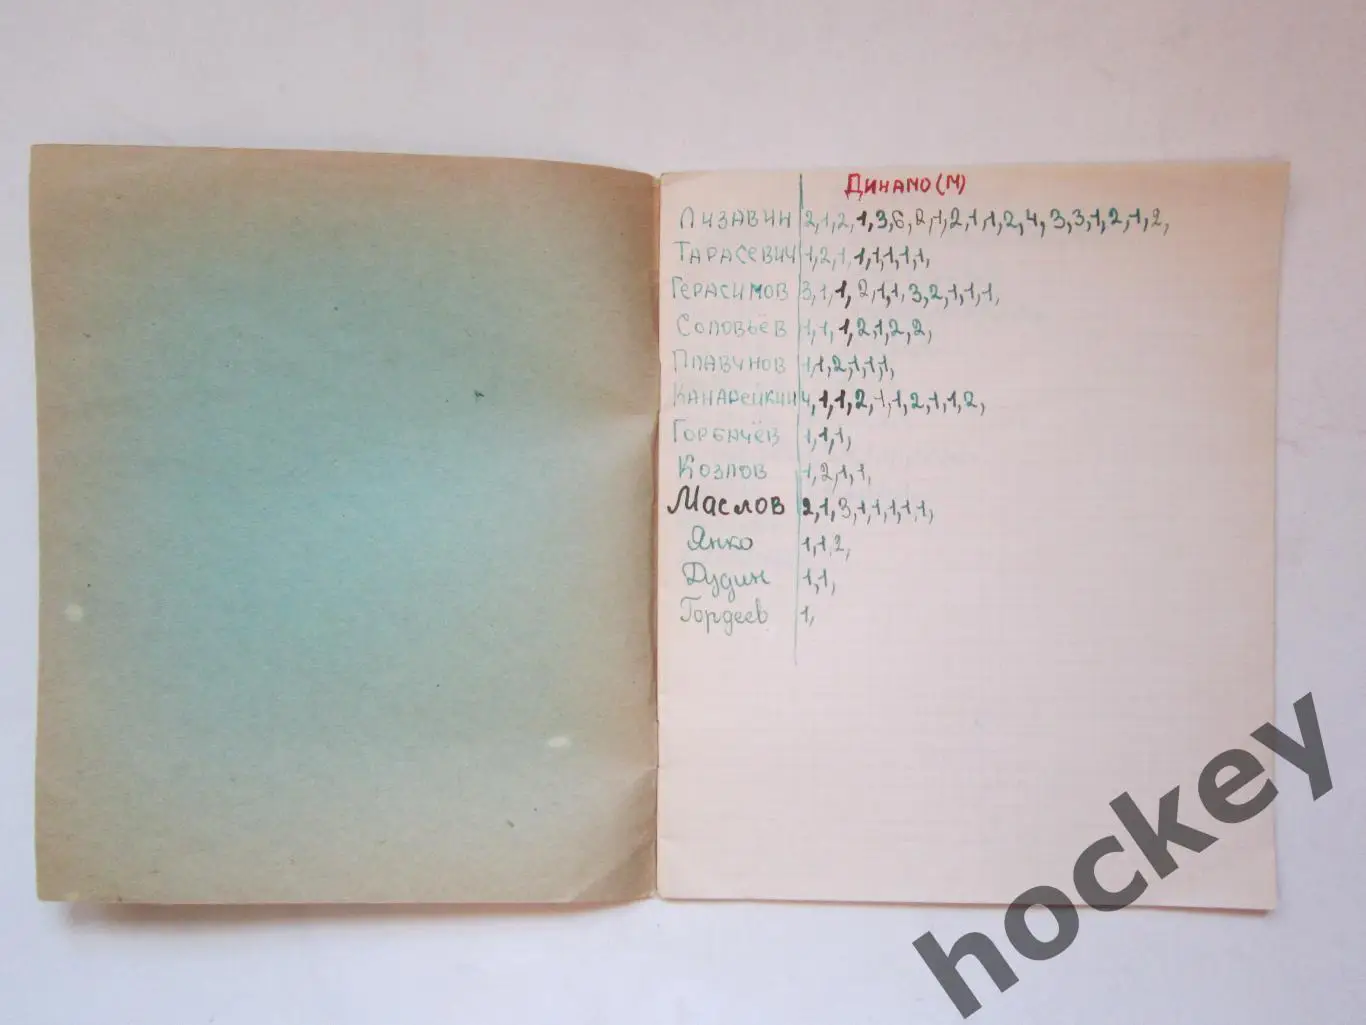 Динамо (М)
Лизавин 2,1,2,1,3,6,2,1,2,1,1,2,4,3,3,1,2,1,2,
Тарасевич 1,2,1,1,1,1,1,1,
Герасимов 3,1,1,2,1,1,3,2,1,1,1,
Соловьёв 1,1,1,2,1,2,2,
Плавунов 1,1,2,1,1,1,
Канарейкин 4,1,1,2,1,1,2,1,1,2,
Горбачёв 1,1,1,
Козлов 1,2,1,1,
Маслов 2,1,3,1,1,1,1,1,
Янко 1,1,2,
Дудин 1,1,
Гордеев 1,
hockey